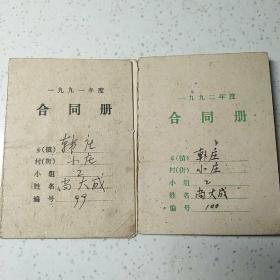 一九九一年度
合同册
乡(镇) 韩庄
村(街) 小庄
小组 2
姓名 尚大成
编号 99
一九九二年度
合同册
乡(镇) 韩庄
村(街) 小庄
小组 2
姓名 尚大成
编号 100